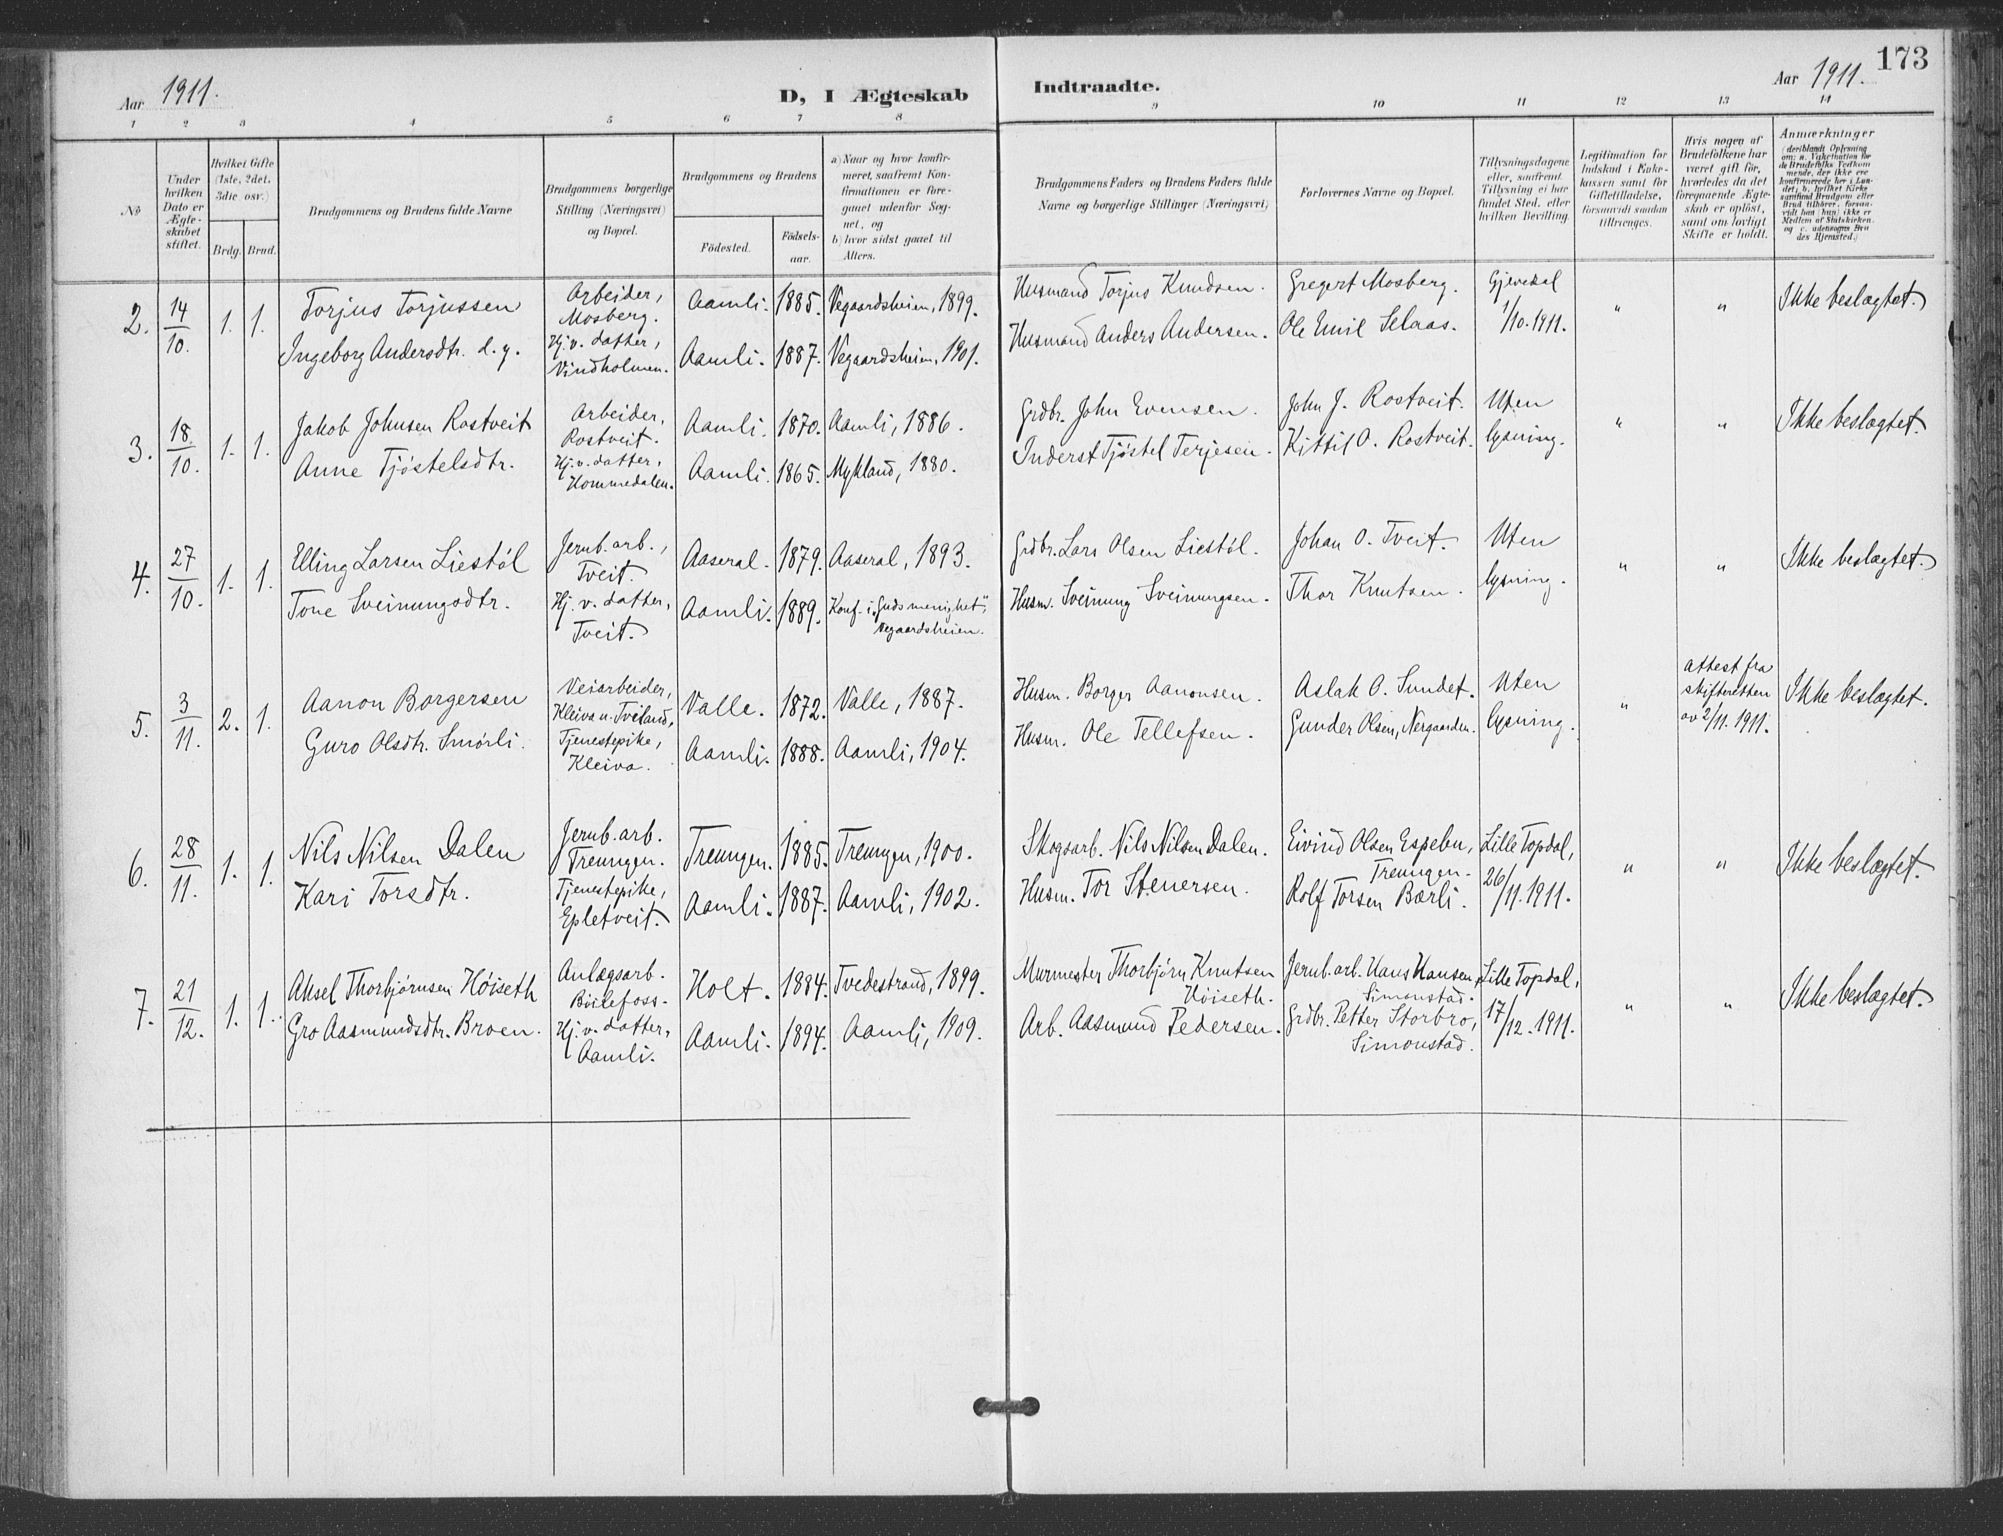 173
Aar 1911.
D, I Ægteskab
Indtraadte.
Aar 1911.
1 2 3 4 5 6 7 8 9 10 11 12 13 14
No
Under hvilken Dato er Ægteskabet stiftet.
Hvilket Gifte (1ste, 2det, 3die osv.)
Brdg. Brud.
Brudgommens og Brudens fulde Navne
Brudgommens borgerlige Stilling (Næringsvei) og Bopæl.
Brudgommens og Brudens
Födested.
Födselsaar.
a) Naar og hvor konfirmeret, saafremt Konfirmationen er foregaaet udenfor Sognet, og
b) hvor sidst gaaet til Alters.
Brudgommens Faders og Brudens Faders fulde Navne og borgerlige Stillinger (Næringsvei)
Forlovernes Navne og Bopæl.
Tillysningsdagene eller, saafremt Tillysning ei har fundet Sted, efter hvilken Bevilling.
Legitimation for Indskud i Enkekassen samt for Giftetilladelse, forsaavidt saadan tiltrænges.
Hvis nogen af Brudefolkene har været gift før, hvorledes da det foregaaende Ægteskab er oplöst, samt om lovligt Skifte er holdt.
Anmærkninger
2. 14/10. 1. 1.
Torjus Torjussen
Ingeborg Andersdtr. d.y.
Arbeider,
Mosberg.
Hj.v. datter,
Vindholmen.
Aamli. 1885. Vegaardsheien, 1899.
Aamli. 1887. Vegaardsheien, 1901.
Husmand Torjus Knudsen.
Husmand Anders Andersen.
Gregert Mosberg.
Ole Emil Selaas.
Gjevedal
1/10. 1911.
" "
Ikke beslægtet.
3. 18/10. 1. 1.
Jakob Johnsen Rostveit
Anne Tjøstelsdtr.
Arbeider,
Rostveit.
Hj.v. datter,
Hommedalen.
Aamli. 1870. Aamli, 1886.
Aamli. 1865. Mykland, 1880.
Grdbr. John Evensen.
Inderst Tjøstel Terjesen.
John J. Rostveit.
Kittil O. Rostveit.
Uten
lysning.
" "
Ikke beslægtet.
4. 27/10. 1. 1.
Elling Larsen Liestøl
Tone Sveinungsdtr.
Jernb. arb.,
Tveit.
Hj. v. datter,
Tveit.
Aaseral. 1879. Aaseral, 1893.
Aamli. 1889. Konf. i „Guds menighet",
Vegaardsheien.
Grdbr. Lars Olsen Liestøl.
Husm. Sveinung Sveinungsen.
Johan O. Tveit.
Thor Knutsen.
Uten
lysning.
" "
Ikke beslægtet.
5. 3/11. 2. 1.
Aanon Borgersen
Guro Olsdtr. Smørli.
Veiarbeider,
Kleiva u. Tveland,
Tjenestepike,
Kleiva.
Valle. 1872. Valle, 1887.
Aamli. 1888. Aamli, 1904.
Husm. Borger Aanonsen.
Husm. Ole Tellefsen.
Aslak O. Sundet.
Gunder Olsen, Nergaarden.
Uten
lysning.
"
attest fra
skifteretten
av 2/11. 1911.
Ikke beslægtet.
6. 28/11. 1. 1.
Nils Nilsen Dalen
Kari Torsdtr.
Jernb. arb.
Treungen.
Tjenestepike,
Epletveit.
Treungen. 1885. Treungen, 1900.
Aamli. 1887. Aamli, 1902.
Skogsarb. Nils Nilsen Dalen.
Husm. Tor Stenersen.
Eivind Olsen Espebu,
Treungen.
Rolf Torsen Bærli.
Lille Topdal,
26/11. 1911.
" "
Ikke beslægtet.
7. 21/12. 1. 1.
Aksel Thorbjørnsen Høiseth
Gro Aasmundsdtr. Broen.
Anlægsarb.
Bøilefoss.
Hj. v. datter,
Aamli.
Holt. 1884. Tvedestrand, 1899.
Aamli. 1894. Aamli, 1909.
Murmester Thorbjørn Knutsen
Høiseth.
Arb. Aasmund Pedersen.
Jernb. arb. Hans Hansen,
Simonstad.
Grdbr. Petter Storbro,
Simonstad.
Lille Topdal,
17/12. 1911.
" "
Ikke beslægtet.